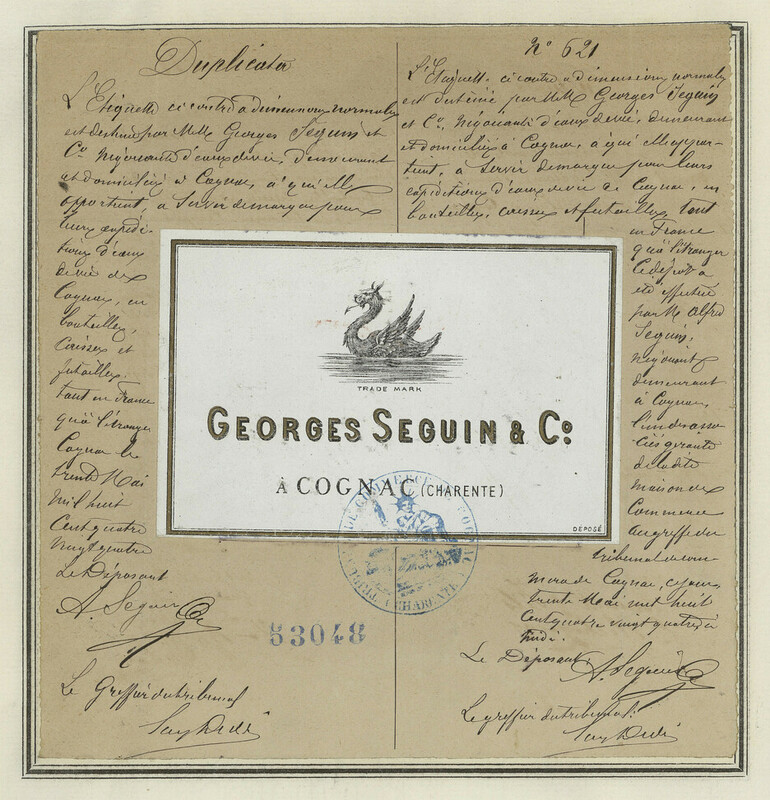 Duplicata
L'Étiquette ci contre a dimensions normales
est destinée par MM. Georges Seguin et
Co. Négociants d'eaux de vie, demeurant
et domiciliés à Cognac, à qui elle
appartient, à servir de marque pour
leurs expédi-
tions d'eaux
de vie de
Cognac, en
bouteilles,
caisses et
futailles,
tant en France
qu'à l'étranger
Cognac le
trente Mai
mil huit
cent quatre
vingt quatre
Le Déposant
A. Seguin
Le Greffier du tribunal
No 621
L'Étiquette ci contre a dimensions normales
est destinée par MM. Georges Seguin
et Co. Négociants d'eaux de vie, demeurant
et domiciliés à Cognac, à qui elle appar-
tient, à servir de marque pour leurs
expéditions d'eaux de vie de Cognac, en
bouteilles, caisses et futailles, tant
en France
qu'à l'étranger
Ce dépôt a
été effectué
par M. Alfred
Seguin,
Négociant
demeurant
à Cognac,
l'un des asso-
ciés gérants
de la dite
maison de
Commerce
au greffe du
tribunal de com-
merce de Cognac, ce jour
trente Mai mil huit
cent quatre vingt quatre, à
midi.
Le Déposant A. Seguin
Le greffier du tribunal:
TRADE MARK
GEORGES SEGUIN & Co.
À COGNAC (CHARENTE)
DÉPOSÉ
TRIBUNAL DE COMMERCE DE COGNAC
(CHARENTE)
53048